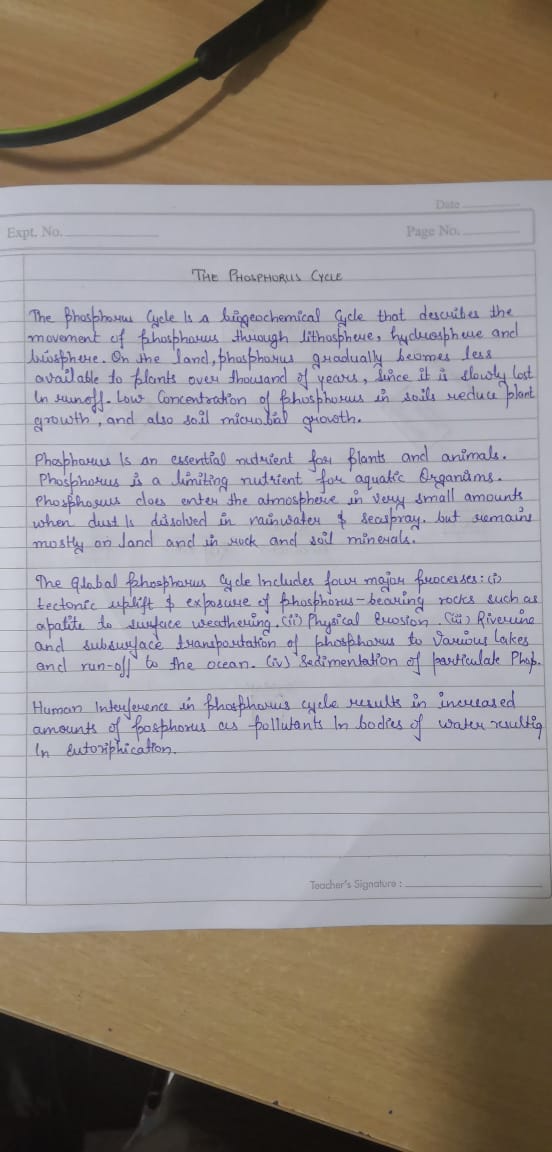 Date
Expt. No.
Page No.
THE PHOSPHORUS CYCLE
The Phosphorus Cycle Is a biogeochemical Cycle that describes the
movement of phosphorus through lithosphere, hydrosphere and
biosphere. On the land, phosphorus gradually becomes less
available to plants over thousand of years, Since it is slowly lost
In runoff. Low Concentration of phosphorus in soils reduce plant
growth, and also soil microbial growth.
Phosphorus Is an essential nutrient for plants and animals.
Phosphorus is a limiting nutrient for aquatic Organisms.
Phosphorus does enter the atmosphere in very small amounts
when dust Is dissolved in rainwater & seaspray. but remains
mostly on land and in rock and soil minerals.
The Global phosphorus Cycle Includes four major processes: (i)
tectonic uplift & exposure of phosphorus-bearing rocks such as
apatite to surface weathering. (ii) Physical Erosion. (iii) Riverine
and subsurface transportation of phosphorus to Various lakes
and run-off to the ocean. (iv) Sedimentation of particulate Phop.
Human Interference in phosphorus cycle results in increased
amounts of fosphorus as pollutants In bodies of water resulting
In Eutoriphication.
Teacher's Signature :